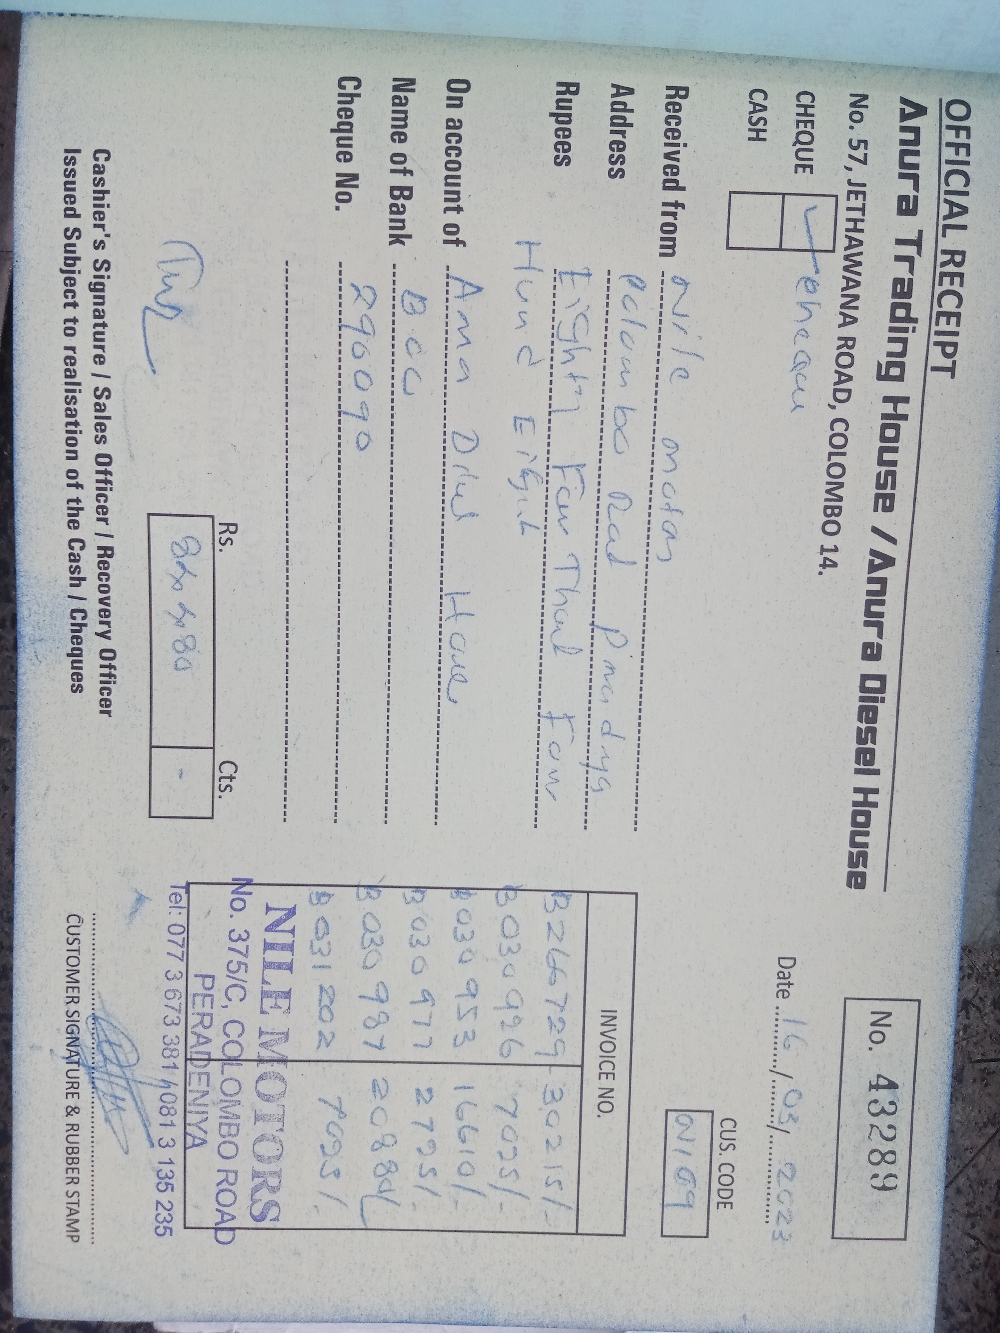 OFFICIAL RECEIPT
Anura Trading House / Anura Diesel House
No. 57, JETHAWANA ROAD, COLOMBO 14.
No. 43289
CHEQUE
CASH
Date 16/03/2023
CUS. CODE
Received from Nile motas
Address Colombo Road
Rupees Eighty Four Thousd Four
Hund Eight
On account of Anna Disel House
Name of Bank B.O.C
Cheque No. 290090
INVOICE NO.
B266729 30215/-
B030926 7095/-
B030953 16610/-
B030977 2795/-
B030987 20880/-
B031202 7095/-
Rs. Cts.
NILE MOTORS
No. 375/C, COLOMBO ROAD
PERADENIYA
Tel: 077 3 673 381 / 081 3 135 235
Cashier's Signature / Sales Officer / Recovery Officer
Issued Subject to realisation of the Cash / Cheques
CUSTOMER SIGNATURE & RUBBER STAMP